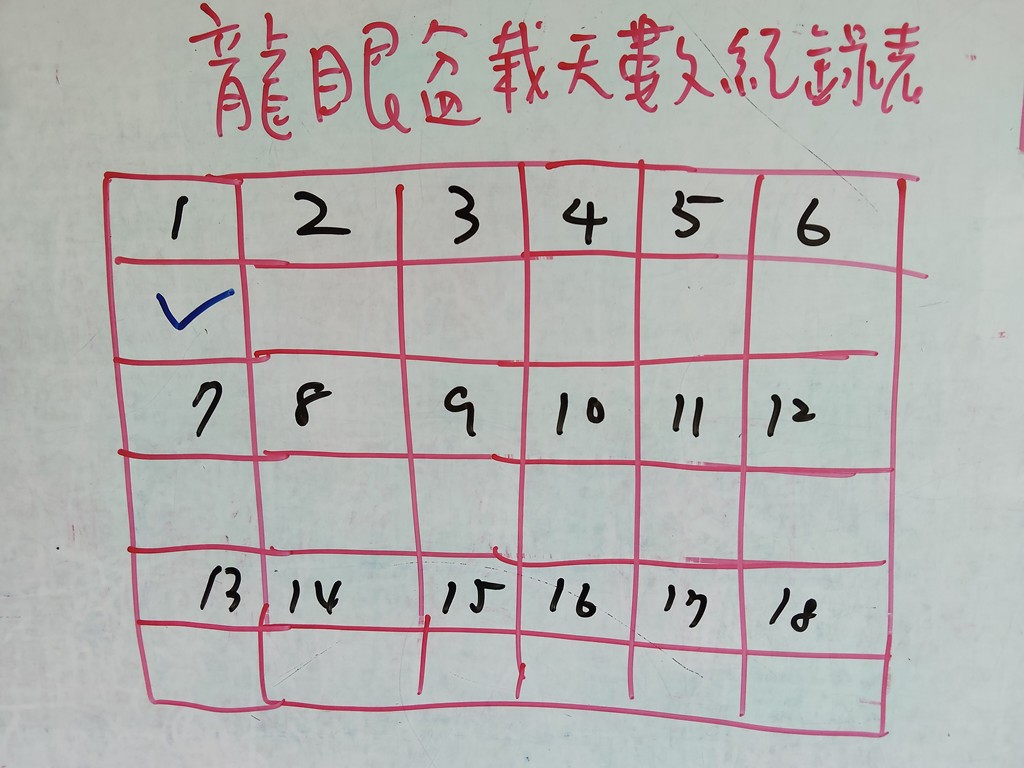 龍眼盆栽天數紀錄表
1 2 3 4 5 6
✓
7 8 9 10 11 12
13 14 15 16 17 18